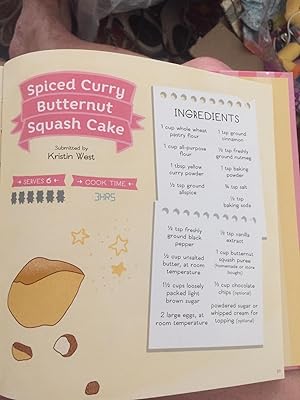 Spiced Curry
Butternut
Squash Cake
Submitted by
Kristin West
SERVES 6
COOK TIME
3HRS
INGREDIENTS
1 cup whole wheat
pastry flour
1 cup all-purpose
flour
1 tbsp yellow
curry powder
½ tsp ground
allspice
1 tsp ground
cinnamon
½ tsp freshly
ground nutmeg
1 tsp baking
powder
¾ tsp salt
½ tsp
baking soda
½ tsp freshly
ground black
pepper
½ cup unsalted
butter, at room
temperature
1½ cups loosely
packed light
brown sugar
2 large eggs, at
room temperature
½ tsp vanilla
extract
1 cup butternut
squash puree
(homemade or store
bought)
½ cup chocolate
chips (optional)
powdered sugar or
whipped cream for
topping (optional)